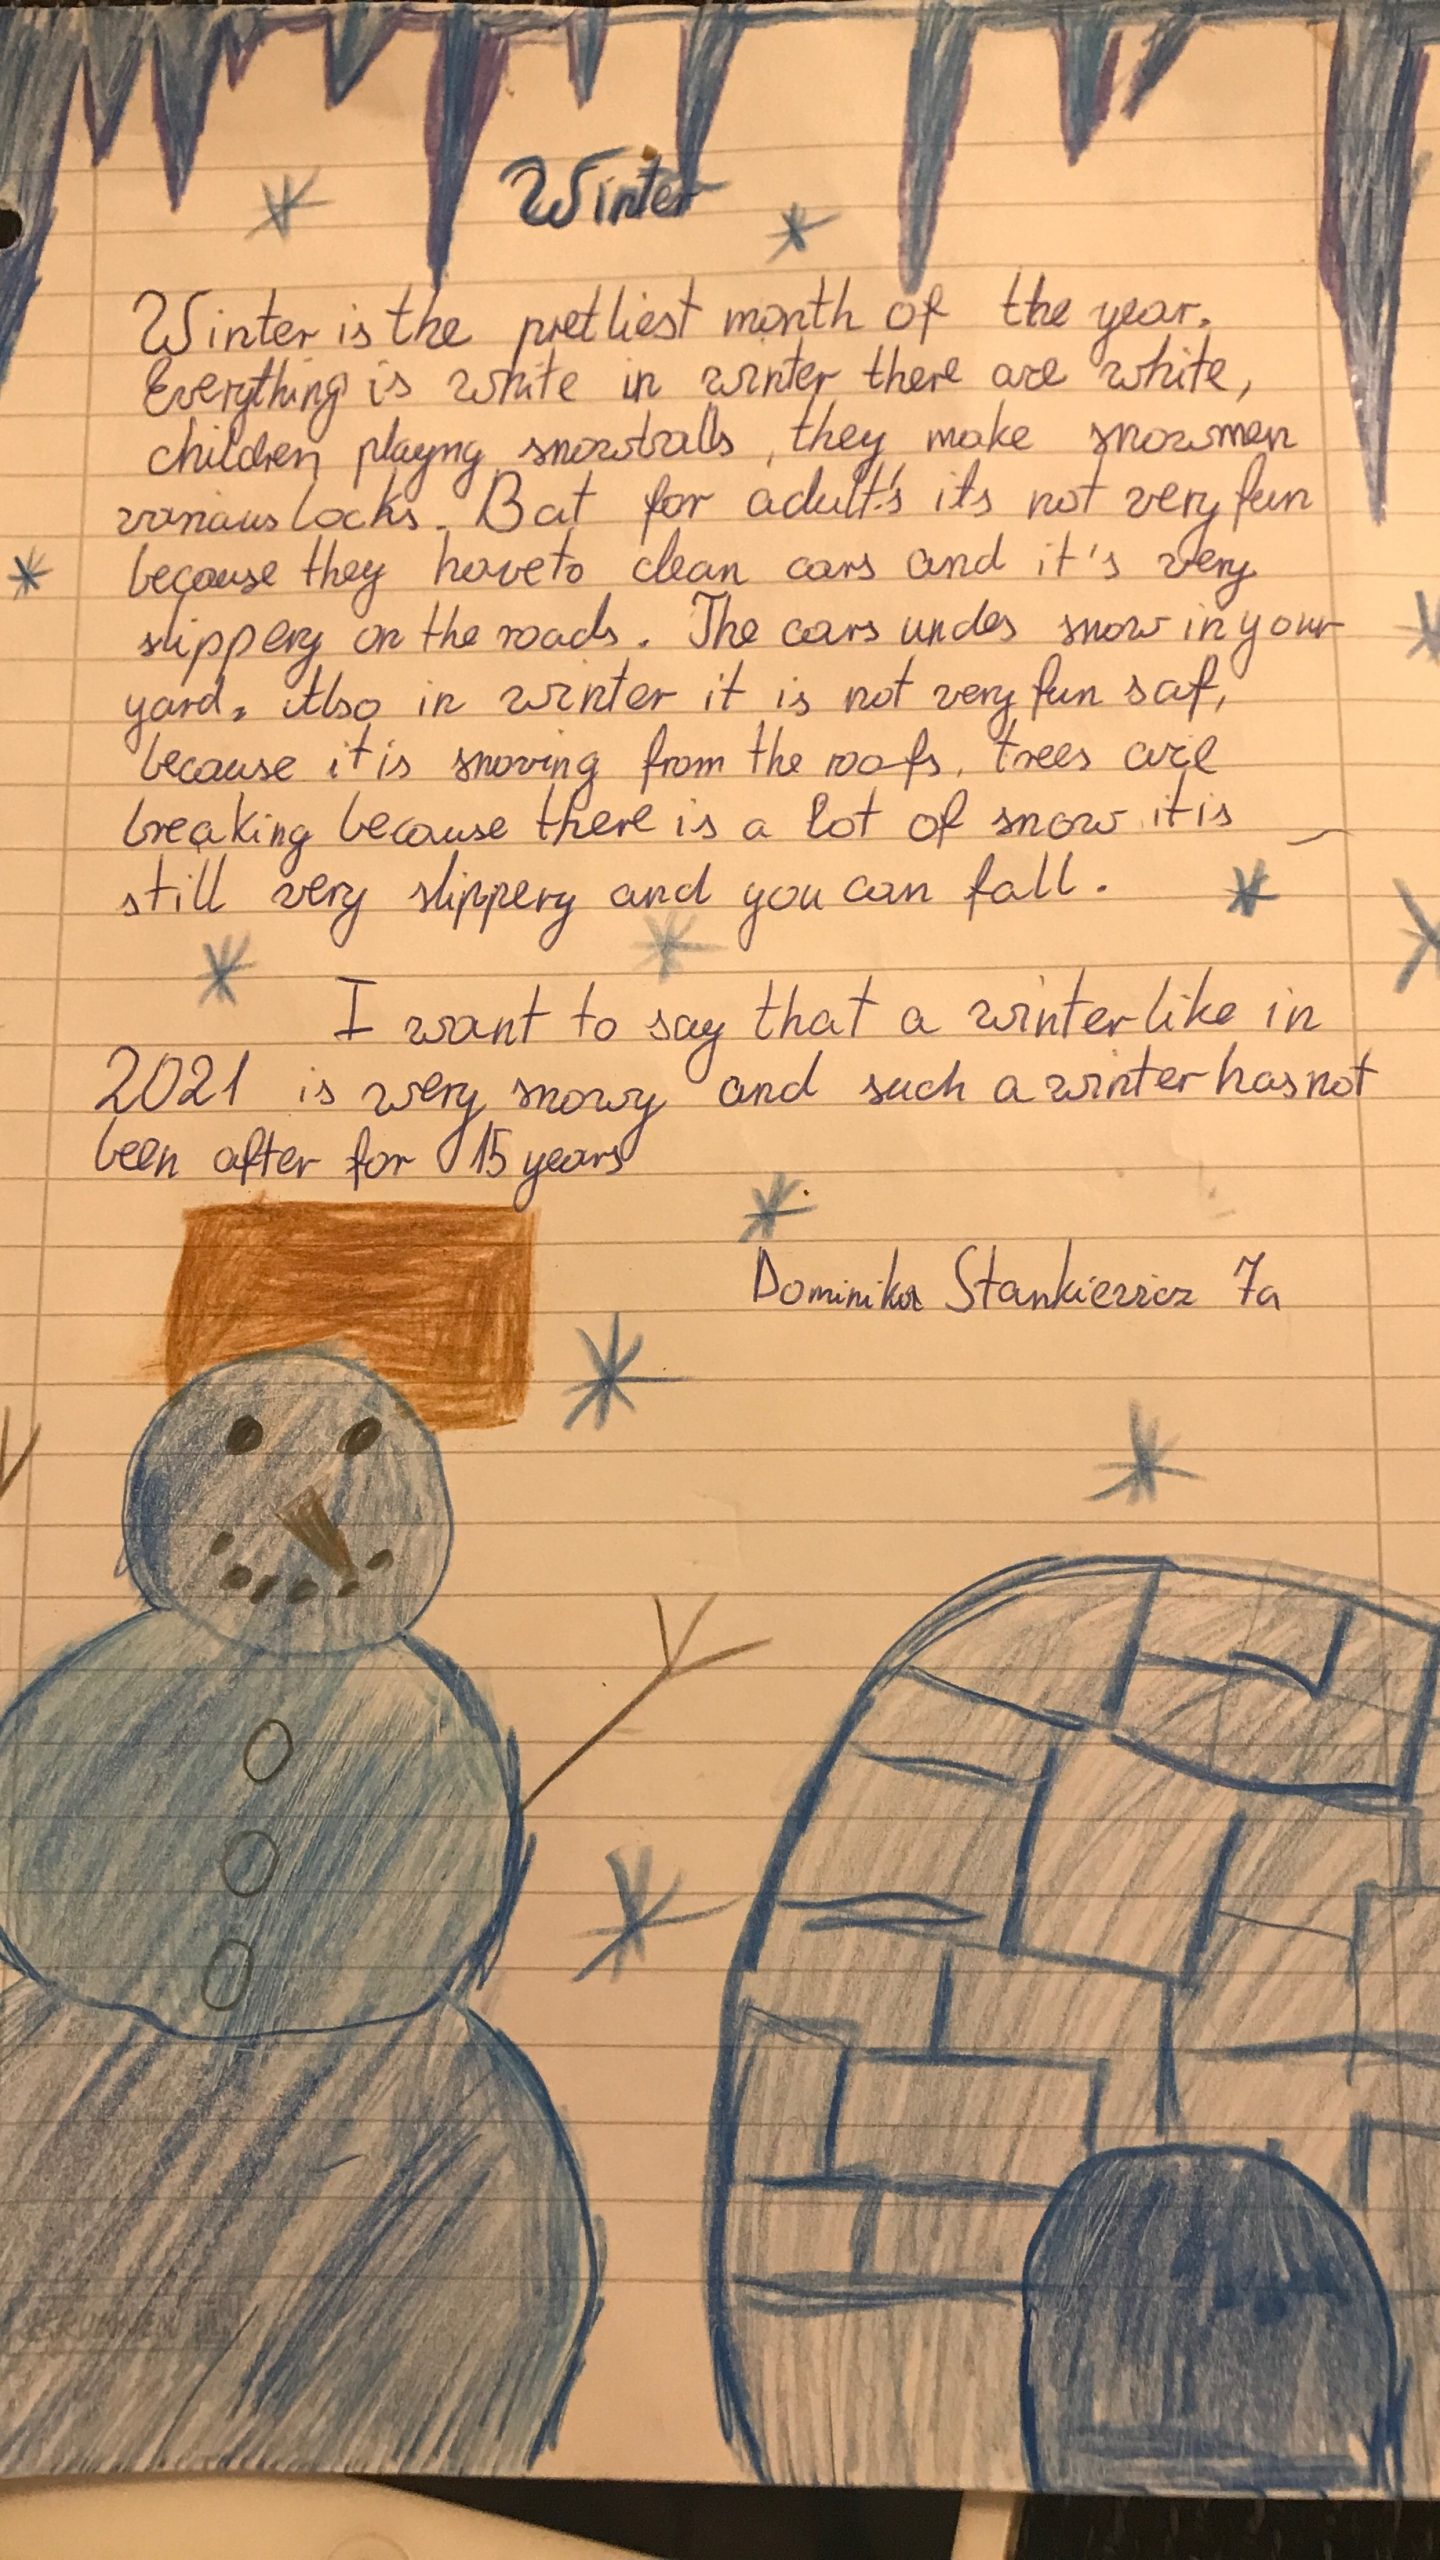 Winter
Winter is the prettiest month of the year.
Everything is white in winter there are white,
children playng snowballs, they make snowmen
various locks. But for adult's its not very fun
because they have to clean cars and it's very
slippery on the roads. The cars undes snow in your
yard. Also in winter it is not very fun saf,
because it is snoving from the roofs, trees are
breaking because there is a lot of snow it is
still very slippery and you can fall.
I want to say that a winter like in
2021 is wery snowy and such a winter has not
been after for 15 years
Dominika Stankiewicz 7a